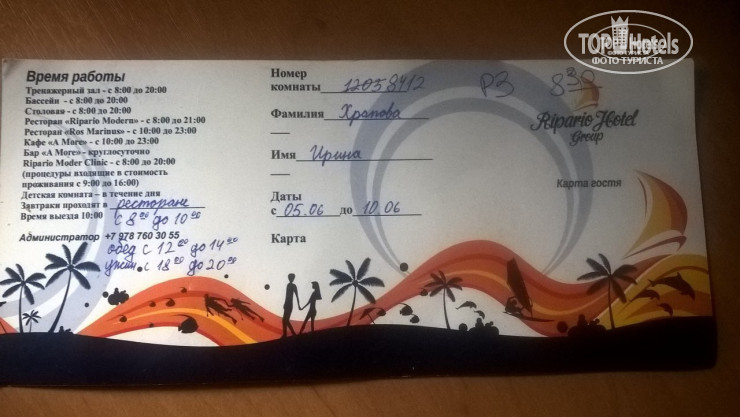 TOP Hotels
ФОТО ТУРИСТА
Время работы
Тренажерный зал - с 8:00 до 20:00
Бассейн - с 8:00 до 20:00
Столовая - с 8:00 до 20:00
Ресторан «Ripario Modern» - с 8:00 до 21:00
Ресторан «Ros Marinus» - с 10:00 до 23:00
Кафе «A More» - с 10:00 до 23:00
Бар «A More» - круглосуточно
Ripario Moder Clinic - с 8:00 до 20:00
(процедуры входящие в стоимость
проживания с 9:00 до 16:00)
Детская комната – в течение дня
Завтраки проходят в ресторане
с 8 00 до 10 00
Время выезда 10:00
Администратор +7 978 760 30 55
обед с 12 00 до 14 00
ужин с 18 00 до 20 00
Номер
комнаты
Фамилия Храпова
Имя Ирина
Даты
с 05.06 до 10.06
Карта
Р3 8
Ripario Hotel
Group
Карта гостя